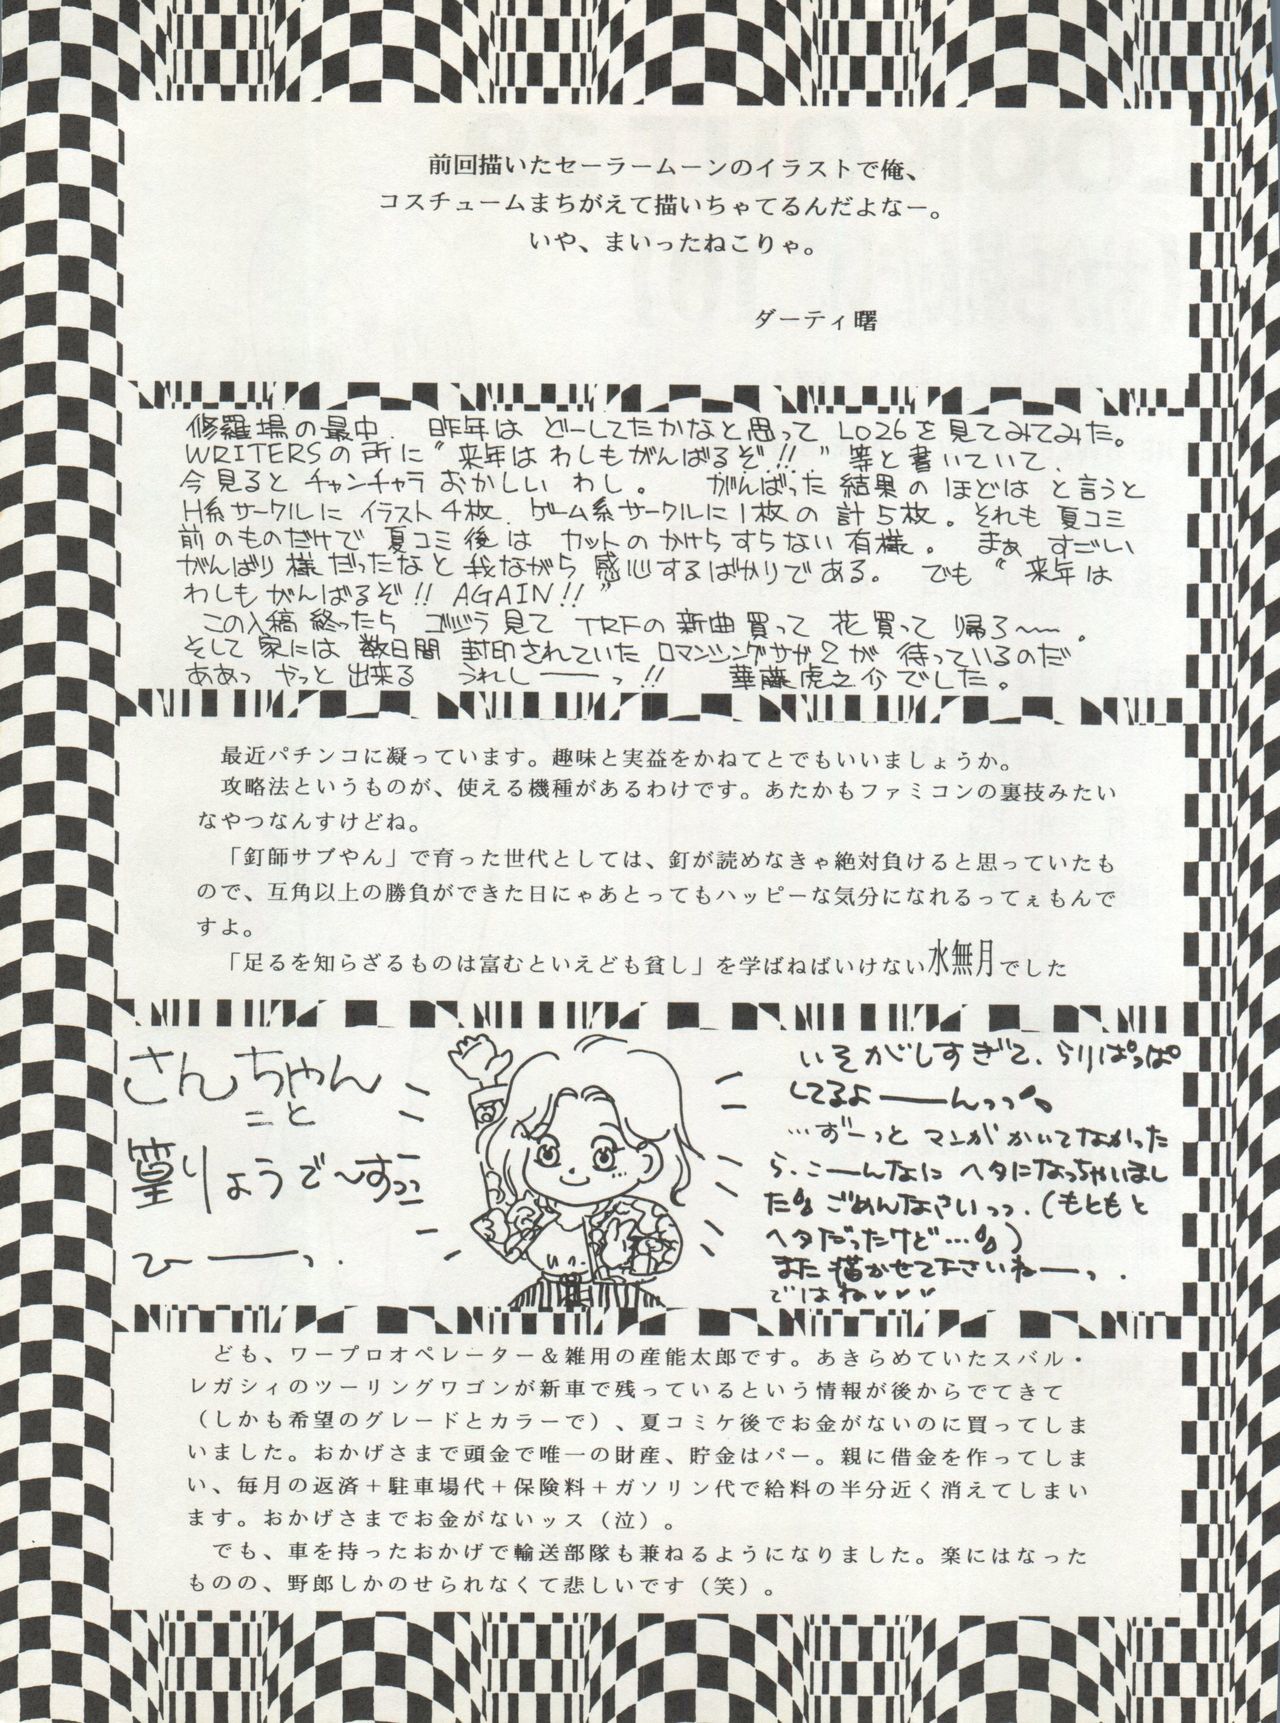 前回描いたセーラームーンのイラストで俺、
コスチュームまちがえて描いちゃてるんだよなー。
いや、まいったねこりゃ。
ダーティ曙
修羅場の最中、昨年は どーしてたかなと思って LO26を見てみてみた。
WRITERSの所に“来年は わしもがんばるぞ!!”等と書いていて、
今見ると チャンチャラ おかしい わし。 がんばった 結果の ほどは と言うと
H系サークルに イラスト4枚、ゲーム系サークルに1枚の 計5枚。それも 夏コミ
前のものだけで 夏コミ 後は カットの かけらすらない 有様。 まぁ すごい
がんばり様だったなと 我ながら 感心するばかりである。 でも“来年は
わしもがんばるぞ!! AGAIN!!”
この入稿 終ったら ゴジラ見て TRFの新曲買って 花買って 帰ろ〜〜。
そして 家には 数日間 封印されていた ロマンシングサガ2が 待っているのだ
ああっ やっと 出来る うれしーーっ!! 華藤虎之介でした。
最近パチンコに凝っています。趣味と実益をかねてとでもいいましょうか。
攻略法というものが、使える機種があるわけです。あたかもファミコンの裏技みたい
なやつなんすけどね。
「釘師サブやん」で育った世代としては、釘が読めなきゃ絶対負けると思っていたも
ので、互角以上の勝負ができた日にゃあとってもハッピーな気分になれるってぇもんで
すよ。
「足るを知らざるものは富むといえども貧し」を学ばねばいけない水無月でした
さんちゃん
こと
篁りょうで〜すっっ
ひーーっ.
いそがしすぎて、らりぱっぱ
してるよーーんっっ
…ずーっと マンガ かいてなかった
ら、こーんなに ヘタになっちゃいまし
た ごめんなさいっっ.(もともと
ヘタだったけど…)
また 描かせて下さいねーっ.
ではね♥♥♥
ども、ワープロオペレーター＆雑用の産能太郎です。あきらめていたスバル・
レガシィのツーリングワゴンが新車で残っているという情報が後からでてきて
（しかも希望のグレードとカラーで）、夏コミケ後でお金がないのに買ってしま
いました。おかげさまで頭金で唯一の財産、貯金はパー。親に借金を作ってしま
い、毎月の返済＋駐車場代＋保険料＋ガソリン代で給料の半分近く消えてしまい
ます。おかげさまでお金がないッス（泣）。
でも、車を持ったおかげで輸送部隊も兼ねるようになりました。楽にはなった
ものの、野郎しかのせられなくて悲しいです（笑）。